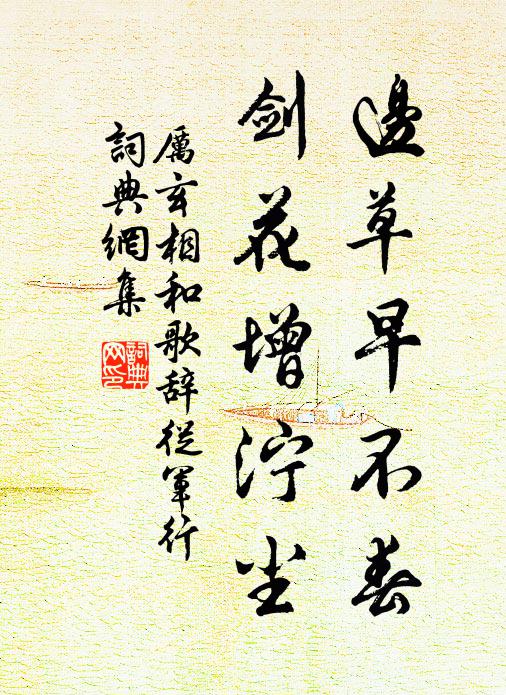 邊草早不春
剑花增泞尘
厲玄相和歌辞從軍行
詞典網集
詞典网印